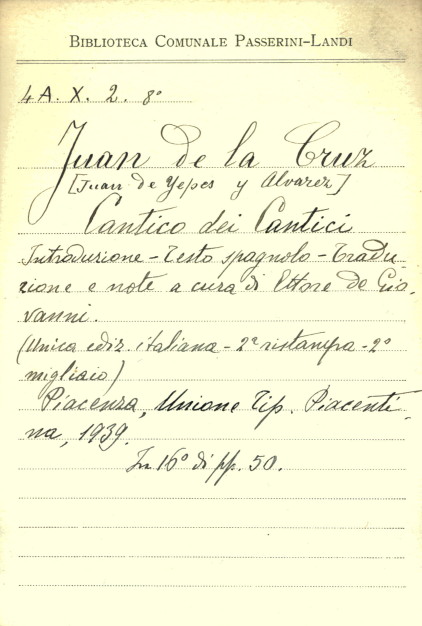 BIBLIOTECA COMUNALE PASSERINI-LANDI
4 A. X. 2. 8º
Juan de la Cruz
[Juan de Yepes y Alvarez]
Cantico dei Cantici
Introduzione - Testo spagnolo - Tradu-
zione e note a cura di Ettore de Gio-
vanni.
(Unica ediz. italiana - 2ª ristampa - 2º
migliaio)
Piacenza, Unione Tip. Piacenti-
na, 1939.
In 16º di pp. 50.